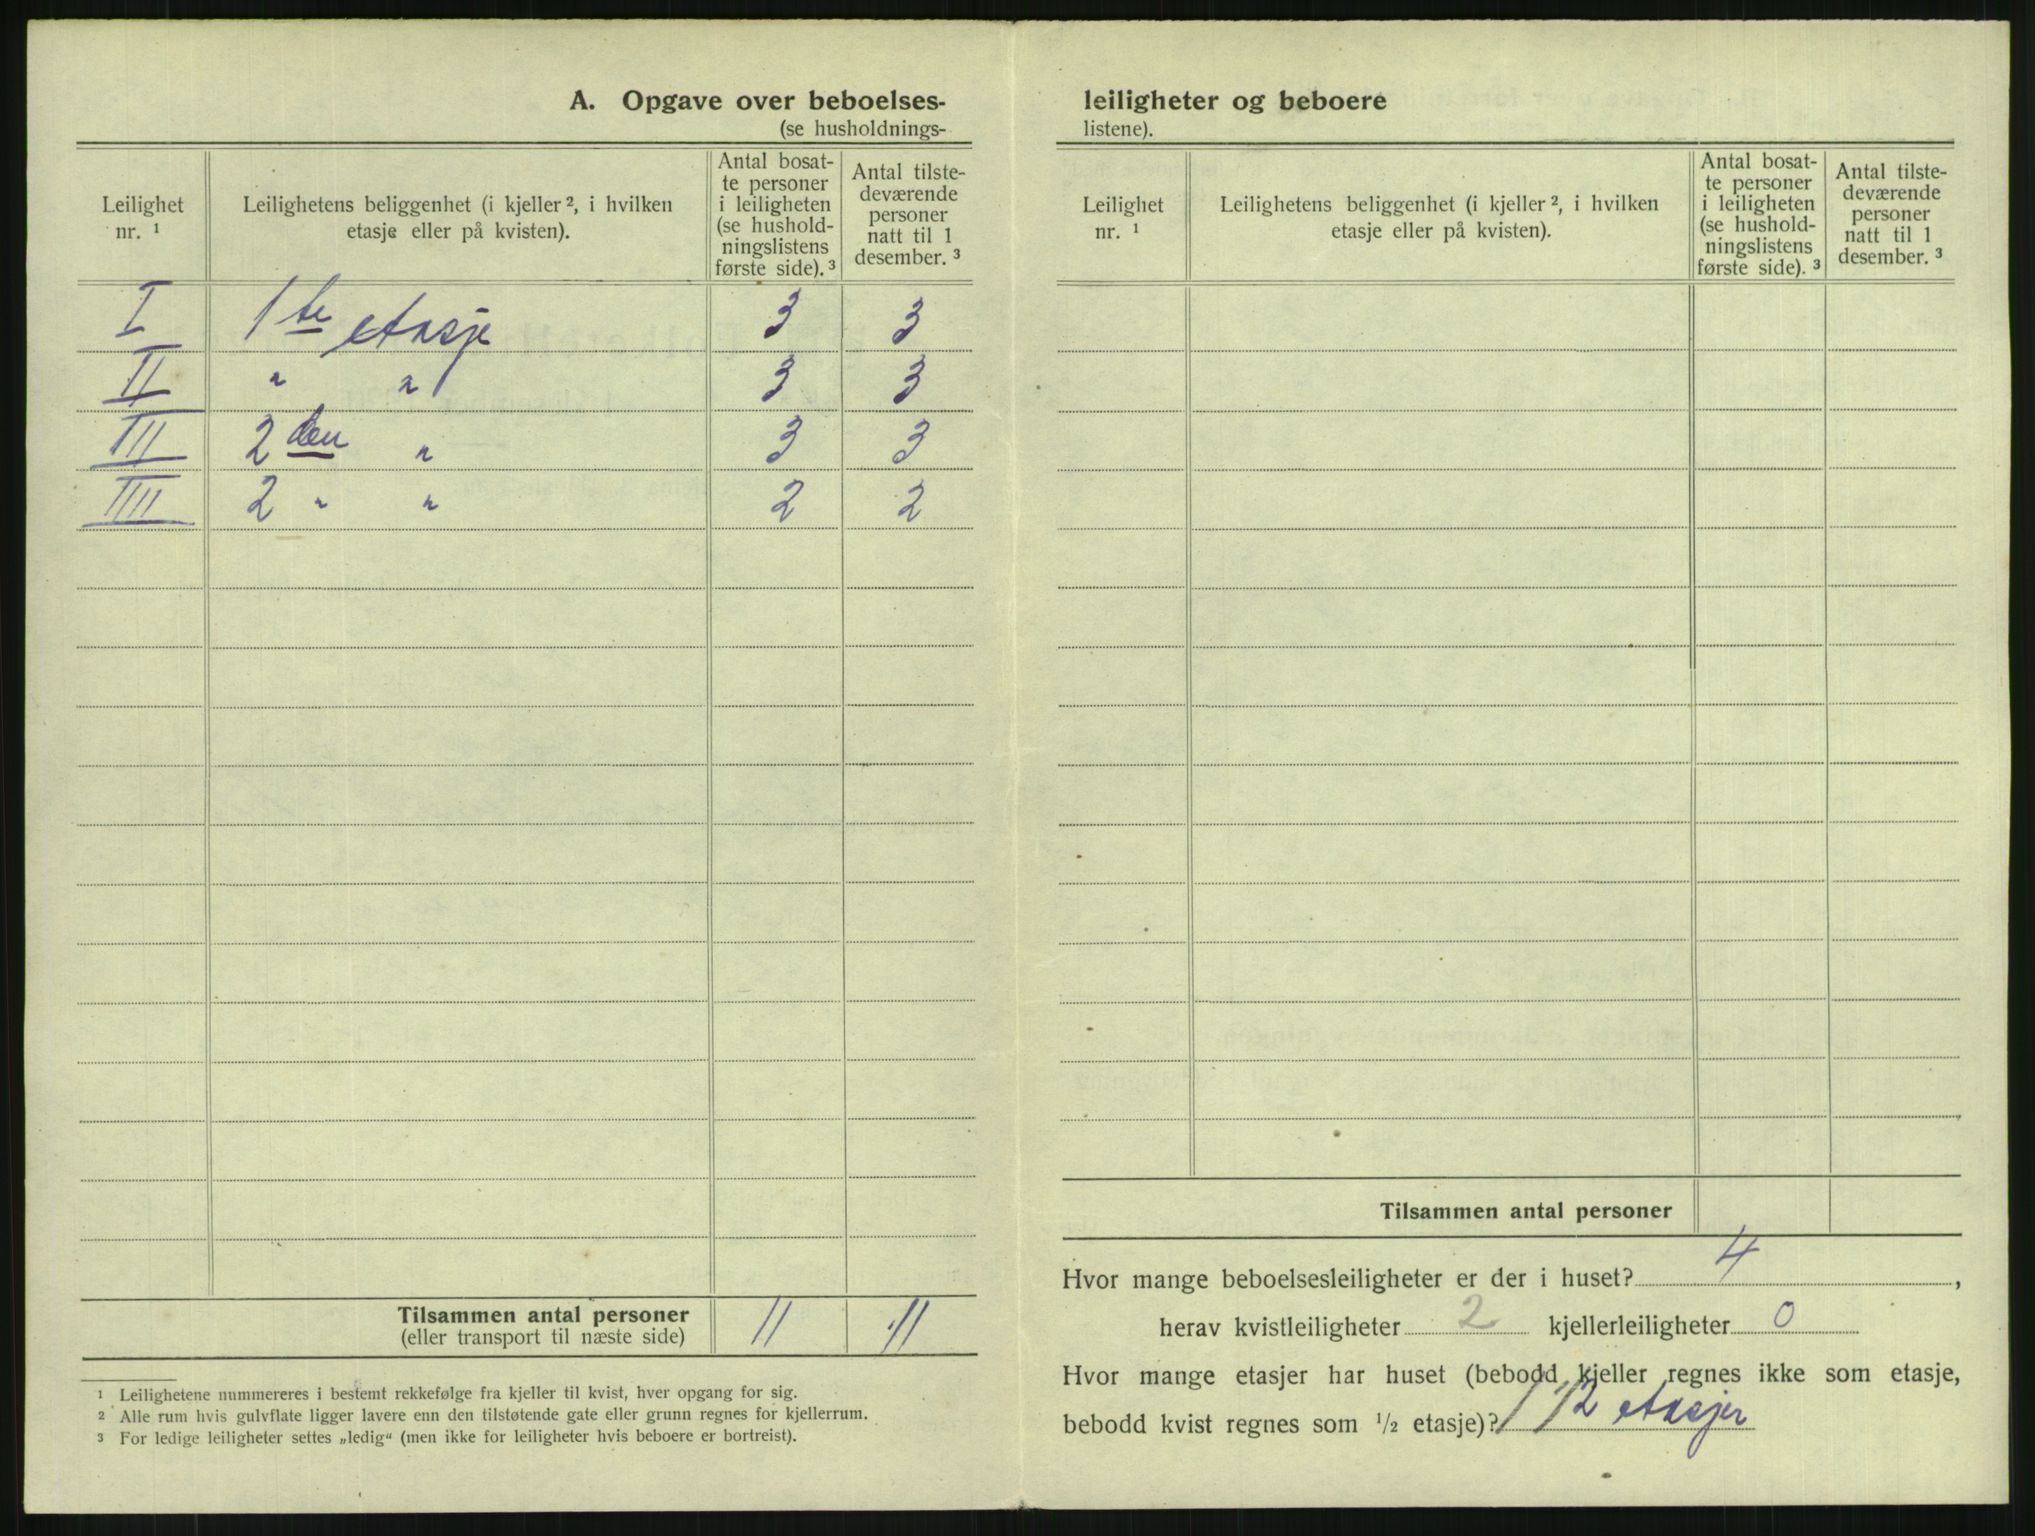 A. Opgave over beboelses-
(se husholdnings-
Leilighet nr. ¹
Leilighetens beliggenhet (i kjeller ², i hvilken etasje eller på kvisten).
Antal bosat-
te personer
i leiligheten
(se hushold-
ningslistens
første side). ³
Antal tilste-
deværende
personer
natt til 1
desember. ³
I 1 te etasje 3 3
II " " 3 3
III 2 den " 3 3
IIII 2 " " 2 2
Tilsammen antal personer 11 11
(eller transport til næste side)
¹ Leilighetene nummereres i bestemt rekkefølge fra kjeller til kvist, hver opgang for sig.
² Alle rum hvis gulvflate ligger lavere enn den tilstøtende gate eller grunn regnes for kjellerrum.
³ For ledige leiligheter settes „ledig“ (men ikke for leiligheter hvis beboere er bortreist).
leiligheter og beboere
listene).
Leilighet nr. ¹
Leilighetens beliggenhet (i kjeller ², i hvilken etasje eller på kvisten).
Antal bosat-
te personer
i leiligheten
(se hushold-
ningslistens
første side). ³
Antal tilste-
deværende
personer
natt til 1
desember. ³
Tilsammen antal personer
Hvor mange beboelsesleiligheter er der i huset? 4 ,
herav kvistleiligheter 2 kjellerleiligheter 0
Hvor mange etasjer har huset (bebodd kjeller regnes ikke som etasje,
bebodd kvist regnes som ½ etasje)? 1 1/2 etasjer